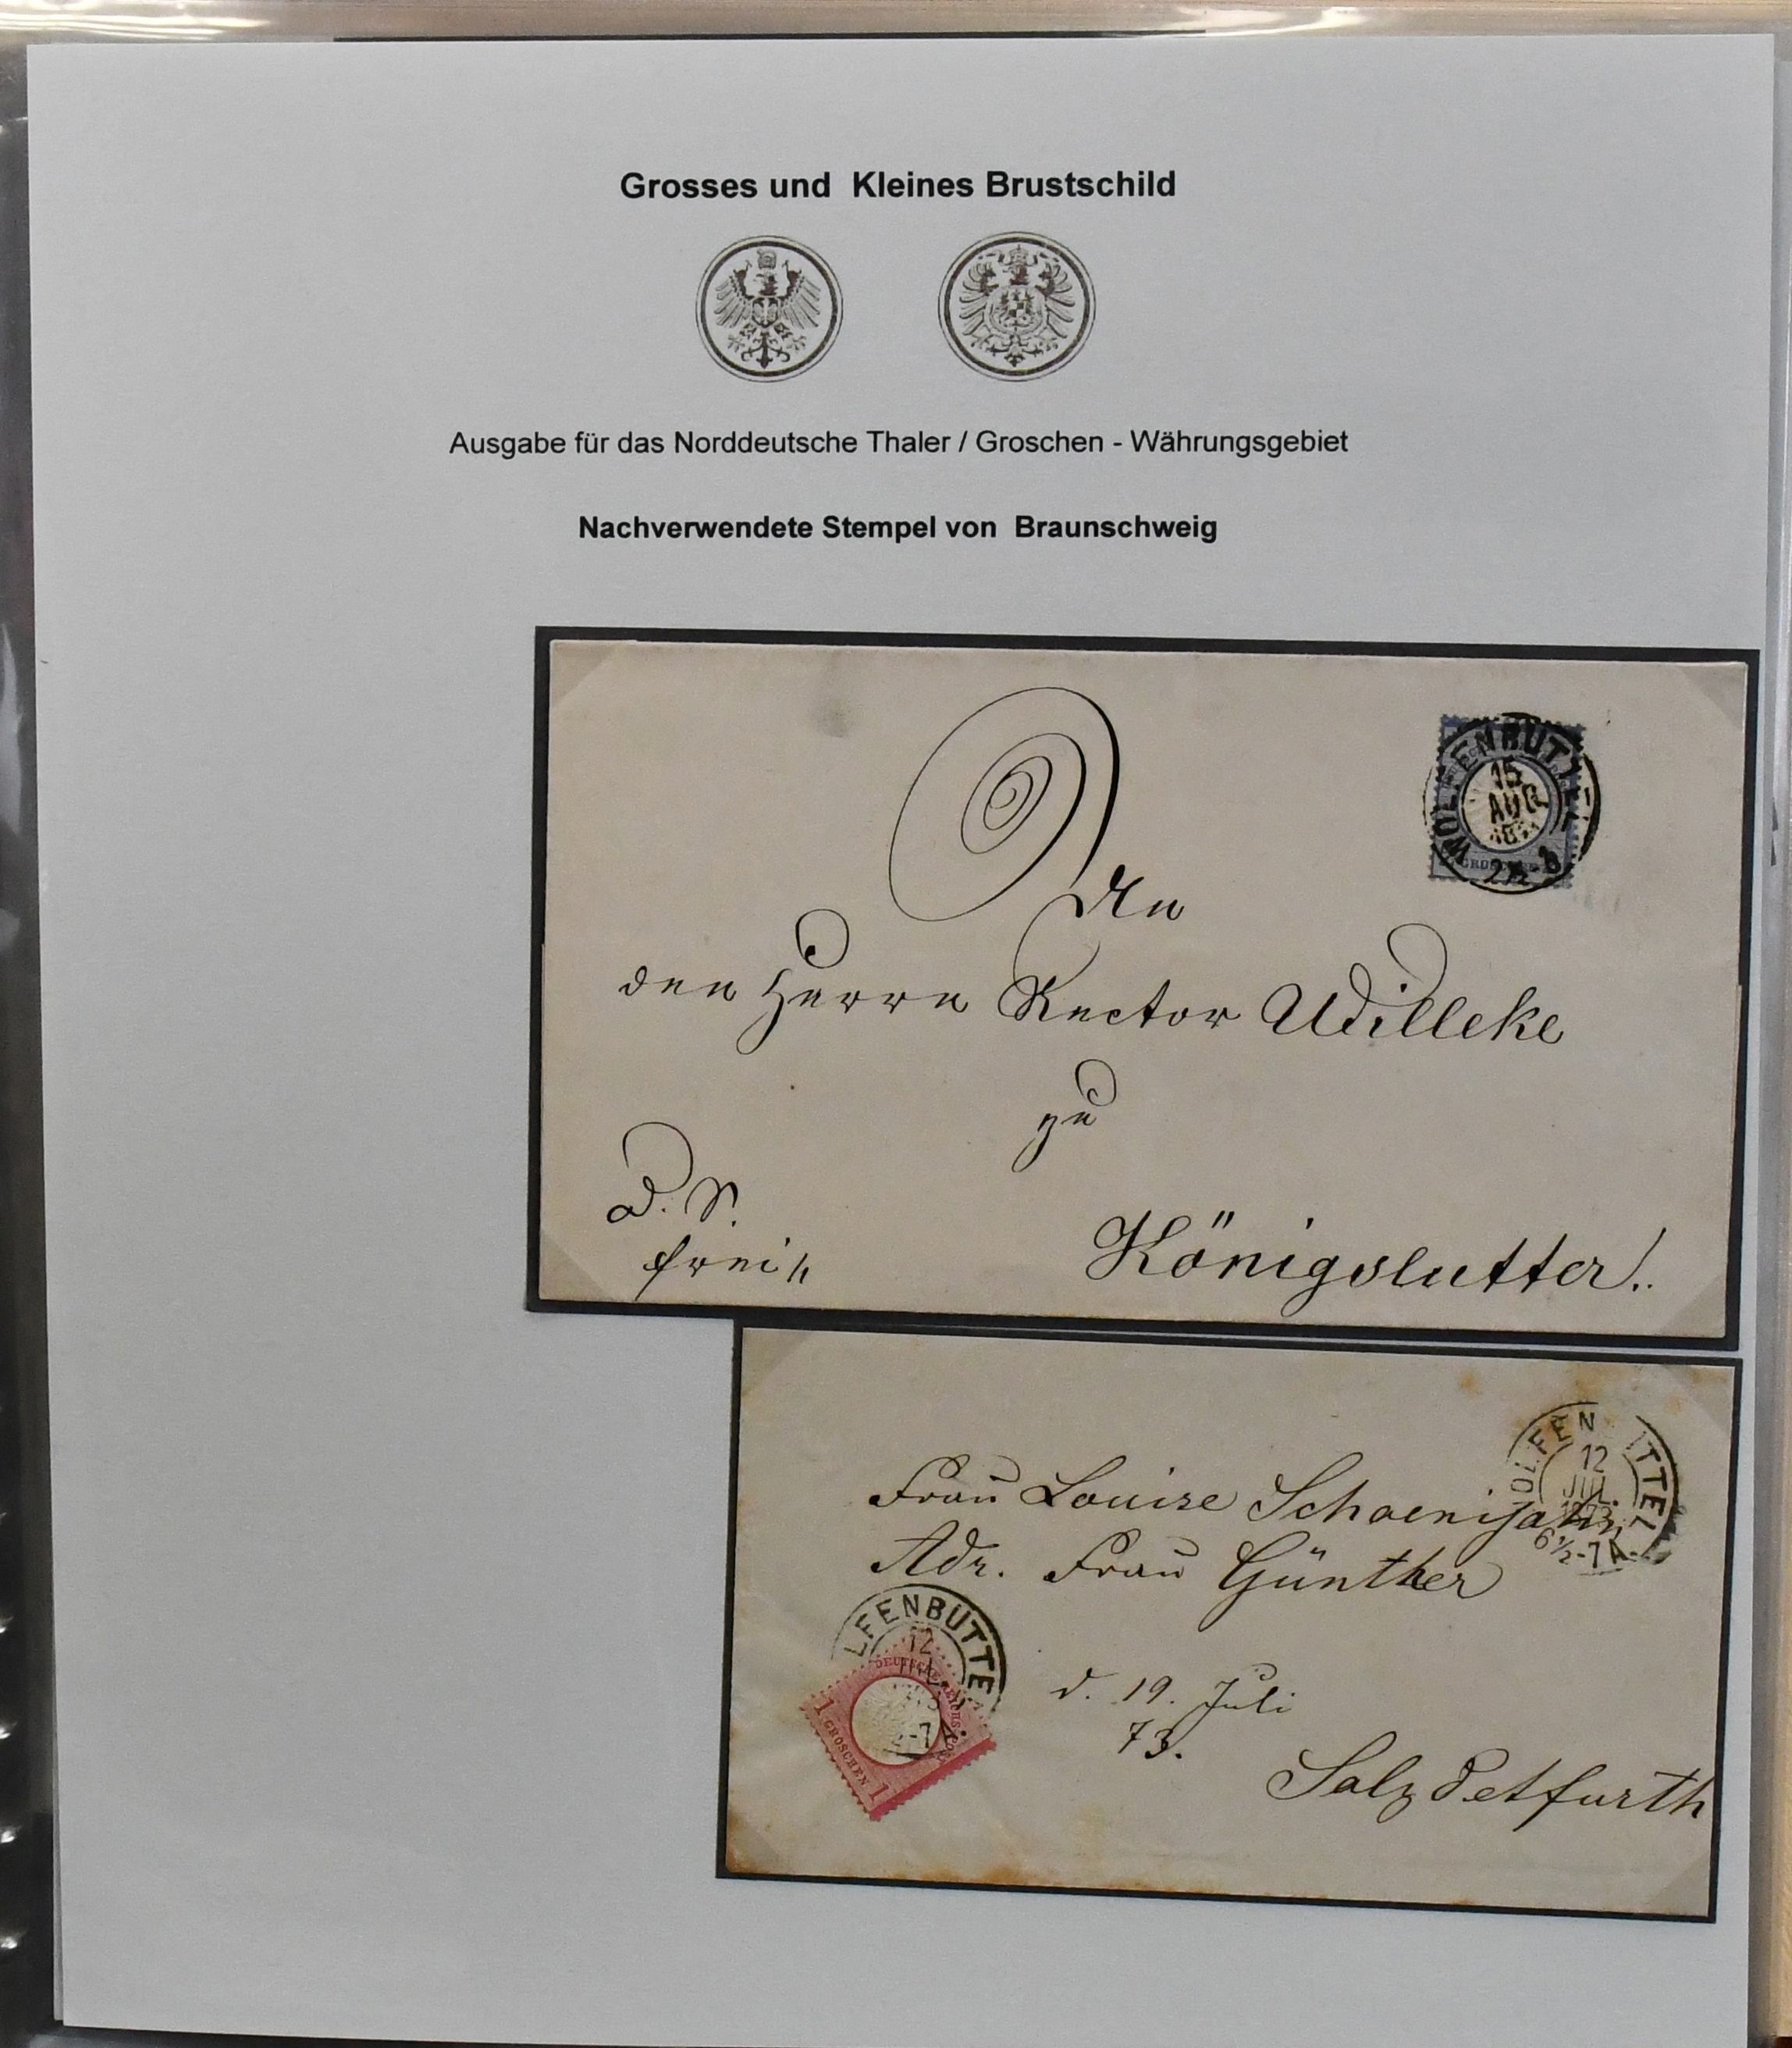 Grosses und Kleines Brustschild
Ausgabe für das Norddeutsche Thaler / Groschen - Währungsgebiet
Nachverwendete Stempel von Braunschweig
WOLFENBÜTTEL
15
AUG
2½-3
GROSCHEN
An
den Herrn Rector Willeke
zu
D. S.
frei
Königslutter!
WOLFENBÜTTEL
12
JUL
1873
6½-7A.
Frau Louise Schoenijahn
Adr. Frau Günther
LFENBÜTTE
12
-7A.
DEUTSCHE REICHS-POST
1 GROSCHEN 1
d. 19. Juli
73.
Salzdetfurth